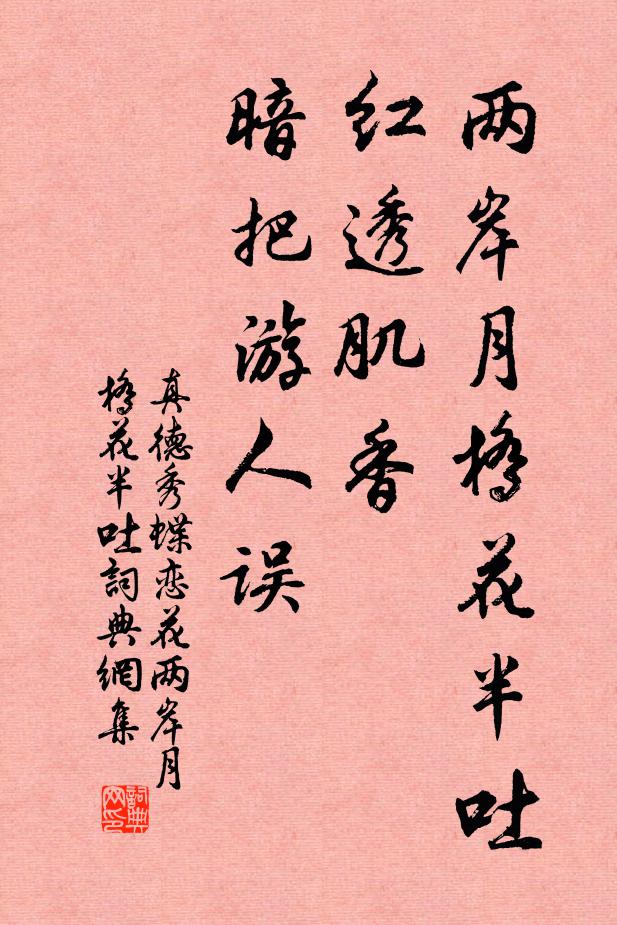 两岸月桥花半吐
红透肌香
暗把游人误
真德秀蝶恋花两岸月
桥花半吐詞典網集
詞典
网印